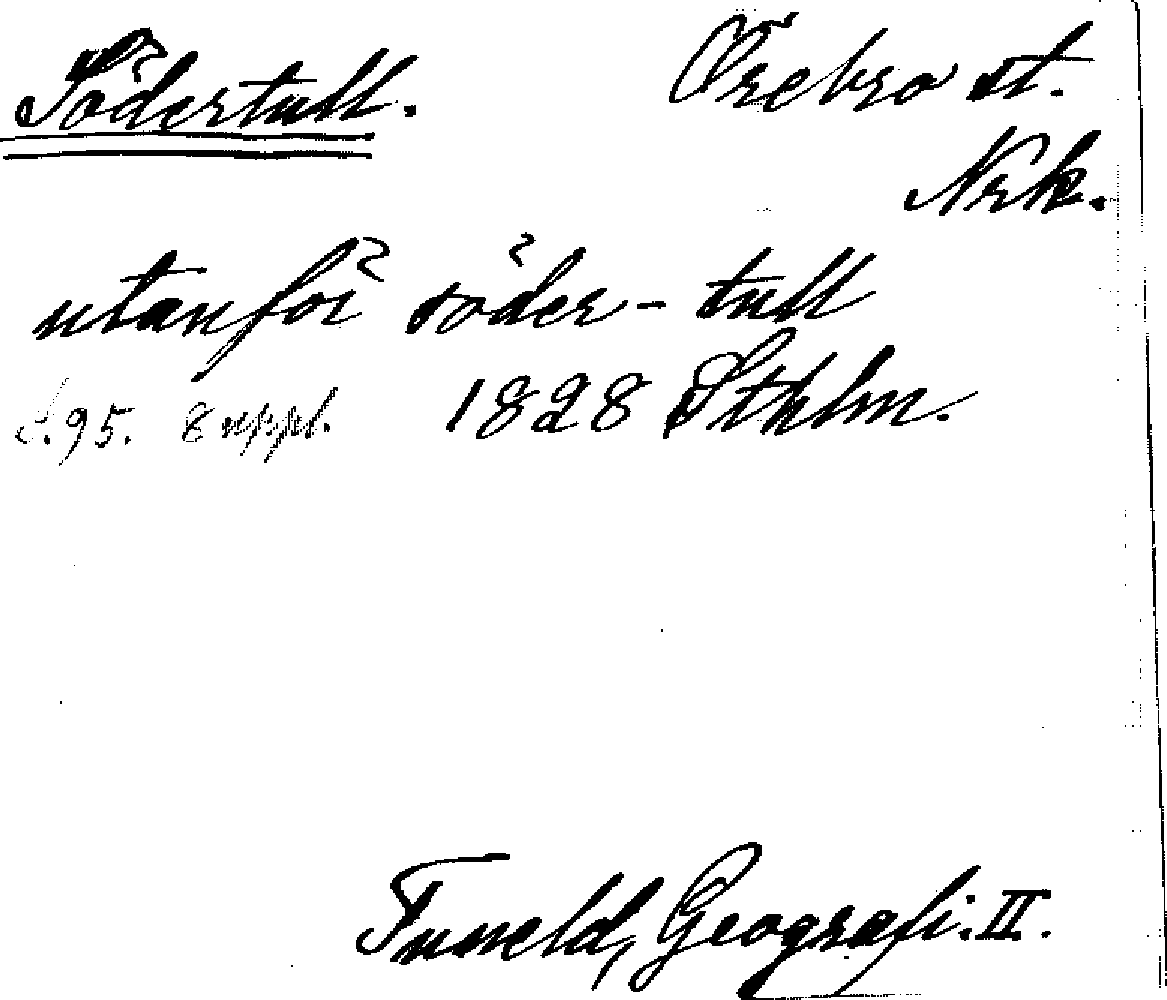 Södertull. Örebro st.
Nrk.
utanför söder-tull
S.95. 8 uppl. 1828 Sthlm.
Tuneld, Geografi. II.